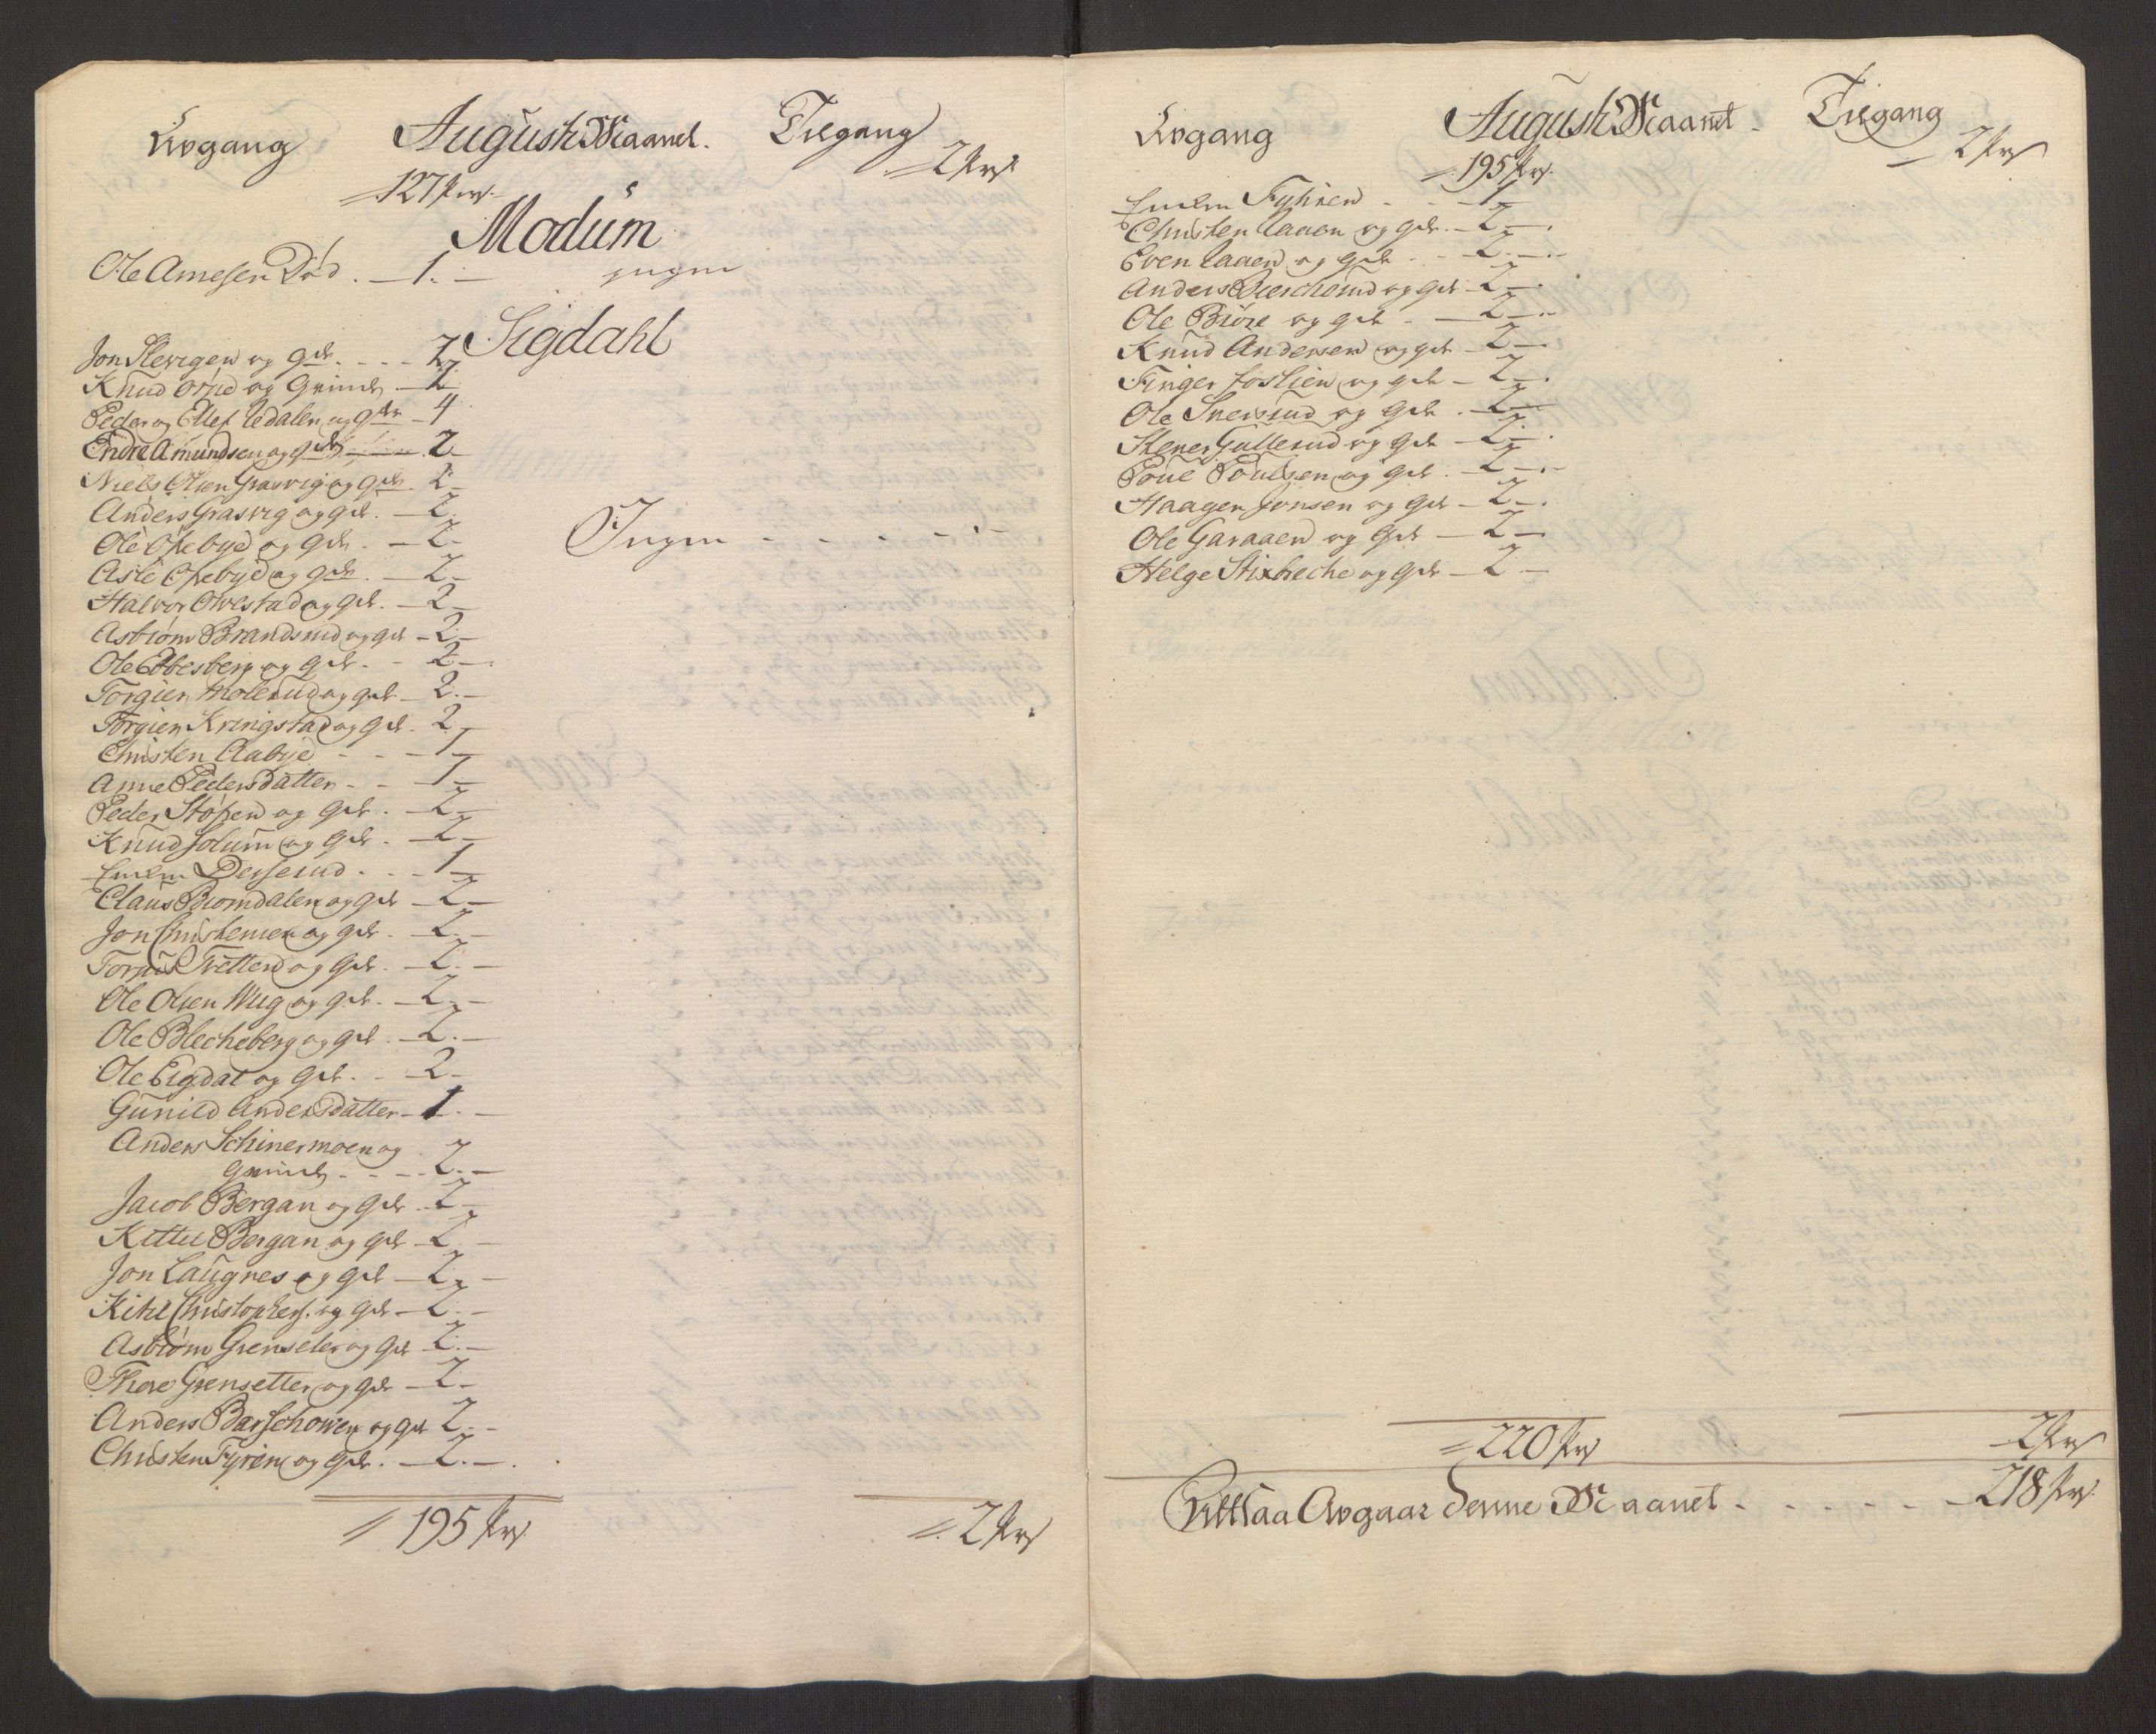 Avgang August Maanet. Tilgang
127 Prs. 2 Prs
Modum
Ole Arnesen Død . 1. ingen
Sigdahl
Jon Slevigen og qde. 2
Knud og Qvinde 2
Peder og Ellef Wedalen og qdr 4
Endre Amundsen og qde 2.
Niels Olsen Grasvig og qde. 2
Anders Grasvig og qde. 2.
Ole Opebye og Qde. 2. Ingen
Asle Opebye og qde. 2
Halvor Olvestad og qde. 2
Asbiørn Brandsrud og qde 2
Ole Ebbesberg og qde. 2
Torgier Molerud og qde 2.
Torgier Kringstad og qde. 2
Christen Aabye 1
Anne Pedersdatter 1
Peder Støpen og qde. 2
Knud Solum og qde. 2
Enchen Desserud 1
Claus Bromdalen og qde 2
Jon Christensen og qde. 2.
Torjus Tvetten og qde. 2.
Ole Olsen Wiig og qde. 2.
Ole Blecheberg og qde. 2.
Ole Eigdal og qde. 2
Gunild Andersdatter 1.
Anders Schinermoen og
Qvinde 2.
Jacob Bergan og qde 2
Kittel Bergan og qde 2
Jon Laugnes og qde 2
Kitil Christophers. og qde 2.
Asbiørn Grenseter og qde 2.
Thore Grensetter og qde 2
Anders Barschowen og qde 2.
Christen Fyrien og qde. 2.
195 Prs 2 Prs
Avgang August Maanet Tilgang
195 Prs. 2 Prs
Enchen Fyhrien 1
Christen Aaaen og qde. 2
Even Aaaen og qde 2.
Anders og qde 2
Ole Biøre og qde 2
Knud Andersen og qde 2
Finger Foslien og qde 2
Ole Snersrud og qde. 2
Stener Gullerud og qde 2
Poul Poulsen og qde. 2
Haagen Jonsen og qde 2
Ole Garaaen og qde 2
Helge Stixbreche og qde 2
220 Prs 2 Prs
Altsaa Avgaar denne Maanet 218 Prs.